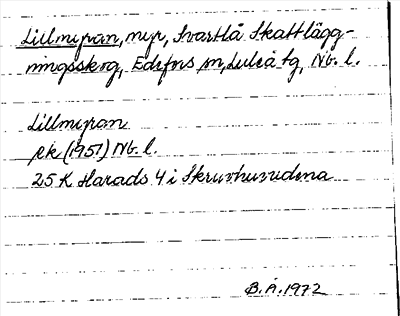 Lillmyran, myr, Svartlå Skattlägg-
ningsskog, Edefors sn, Luleå tg, Nb. l.
Lillmyran
ek (1951) Nb. l.
25 K Harads 4 i Skruvhuvudena
B.Å. 1972